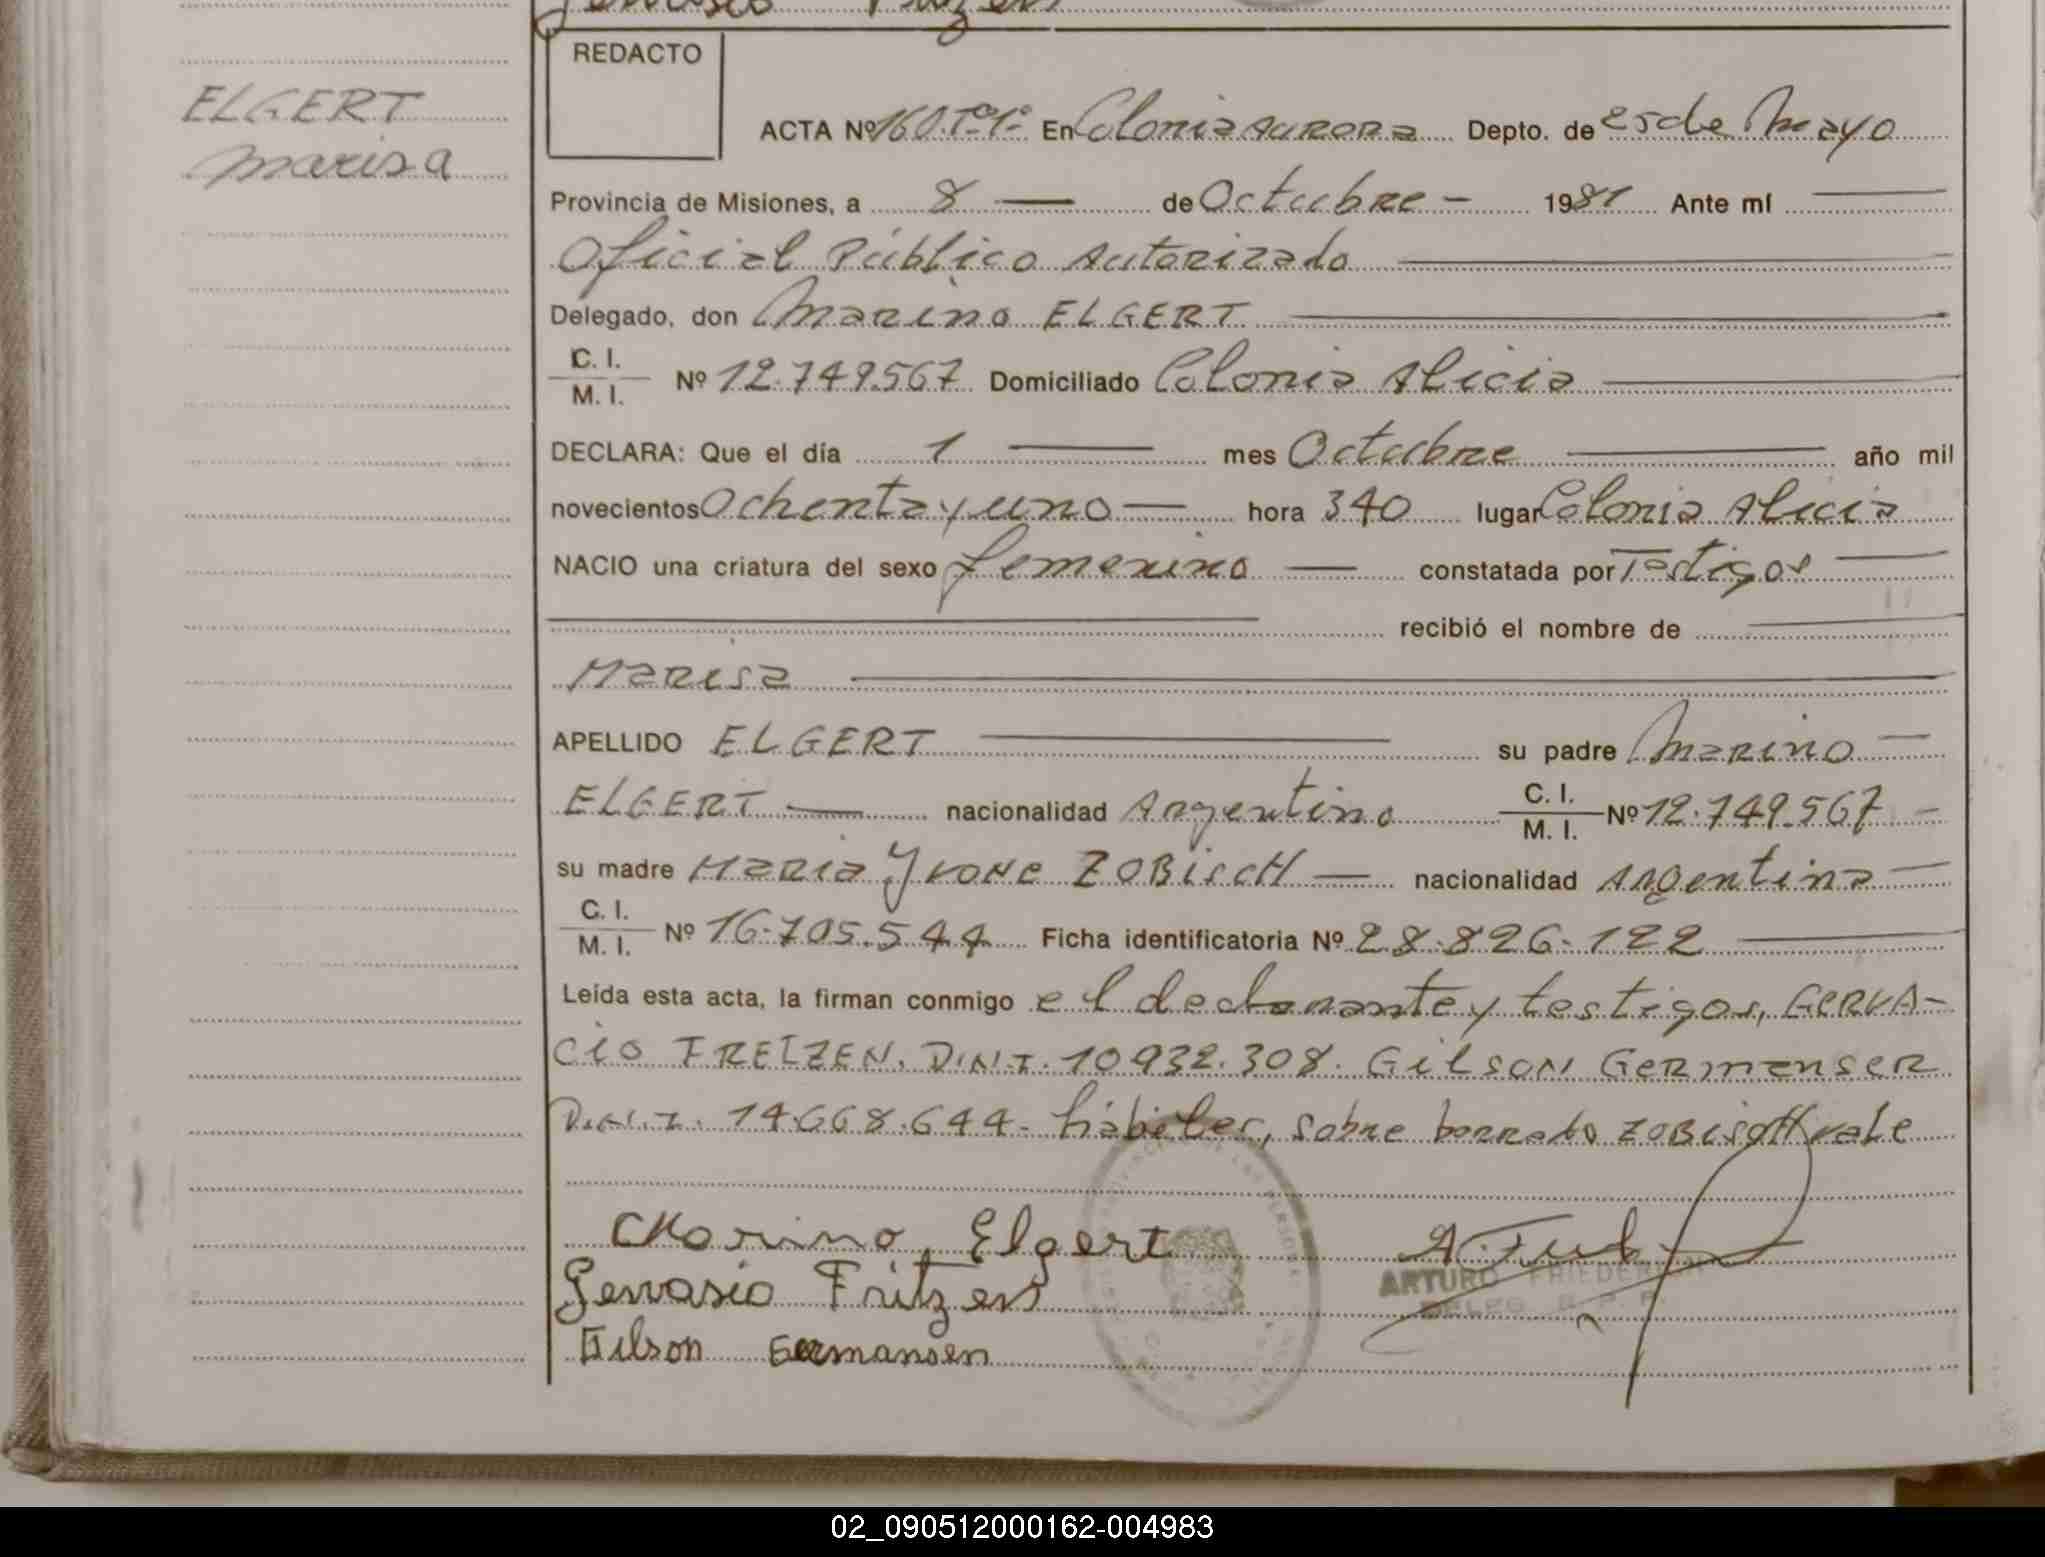 Gervasio Fritzen
REDACTO
ELGERT
Marisa
ACTA Nº 160 Tº 1º En Colonia Aurora Depto. de 25 de Mayo
Provincia de Misiones, a 8 — de Octubre - 1981 Ante mí
Oficial Público Autorizado
Delegado, don Marino ELGERT
C. I.
M. I. Nº 12.749.567 Domiciliado Colonia Alicia
DECLARA: Que el día 1 — mes Octubre — año mil
novecientos Ochenta y uno — hora 340 lugar Colonia Alicia
NACIO una criatura del sexo femenino — constatada por Testigos
recibió el nombre de
Marisa
APELLIDO ELGERT su padre Marino
ELGERT — nacionalidad Argentino C. I. M. I. Nº 12.749.567 -
su madre Maria Yvone ZOBiscH — nacionalidad Argentina
C. I.
M. I. Nº 16.705.544 Ficha identificatoria Nº 28.826.122
Leída esta acta, la firman conmigo el declarante y testigos, GERVA-
CiO FREIZEN. D.N.I. 10932.308. GilsON GERmanSER
D.N.I. 14.668.644- hábiles, sobre borrado ZOBiscH vale
Marino Elgert
Gervasio Fritzen
Gilson Germansen
ARTURO FRIEDERICH
DELEG. R. P. P.
02_090512000162-004983